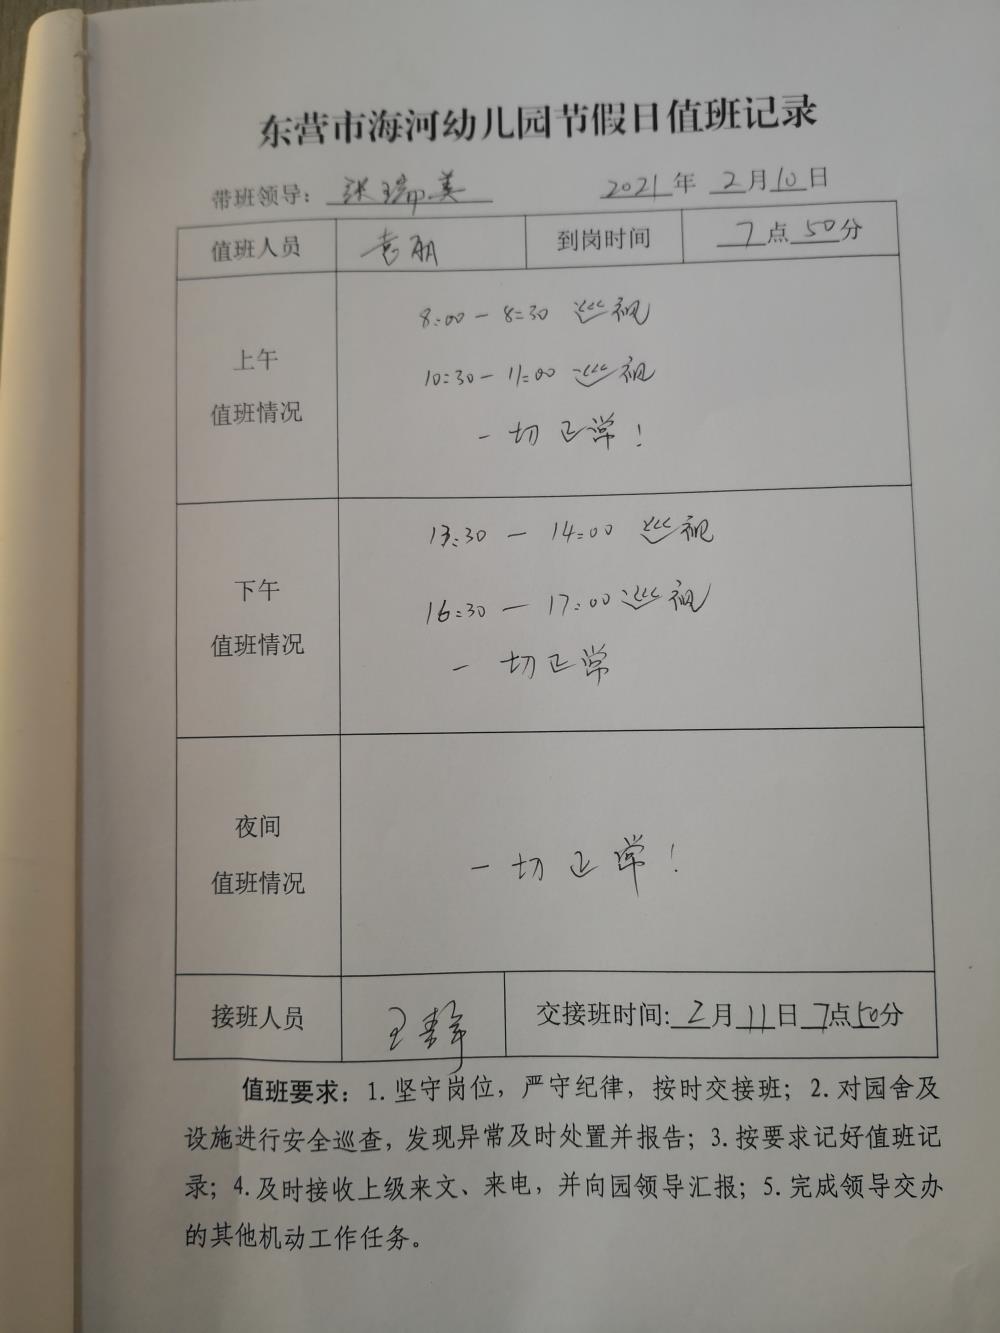 东营市海河幼儿园节假日值班记录
带班领导: 张瑞美 2021年 2月10日
值班人员 袁丽 到岗时间 7点50分
8:00-8:30 巡视
10:30-11:00 巡视
上午
值班情况
一切正常!
13:30-14:00 巡视
16:30-17:00 巡视
下午
值班情况
一切正常
夜间
值班情况
一切正常!
接班人员 王静 交接班时间:2月11日7点50分
值班要求:1.坚守岗位,严守纪律,按时交接班;2.对园舍及
设施进行安全巡查,发现异常及时处置并报告;3.按要求记好值班记
录;4.及时接收上级来文、来电,并向园领导汇报;5.完成领导交办
的其他机动工作任务。